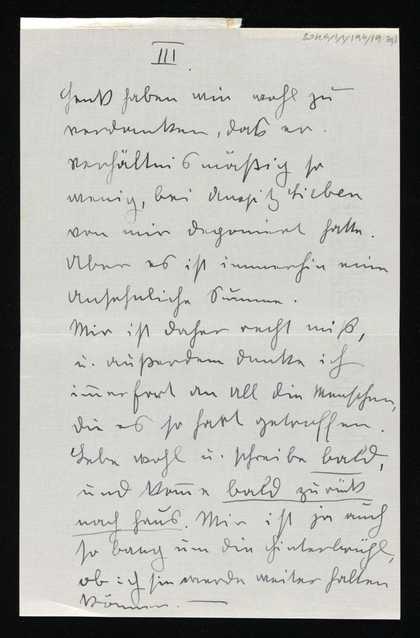 III.
haben wir wohl zu
verdanken, daß er
verhältnismäßig so
wenig, bei Auspitz Lieben
von mir deponiert hatte.
Aber es ist immerhin eine
ansehnliche Summe.
Mir ist daher recht mieß,
u. außerdem denke ich
im̅erfort an all die Menschen,
die es so hart getroffen.
Lebe wohl u. schreibe bald,
und kom̅e bald zurück
nach Haus. Mir ist ja auch
so bang um die Hinterbrühl,
ob ich sie werde weiter halten
können. —